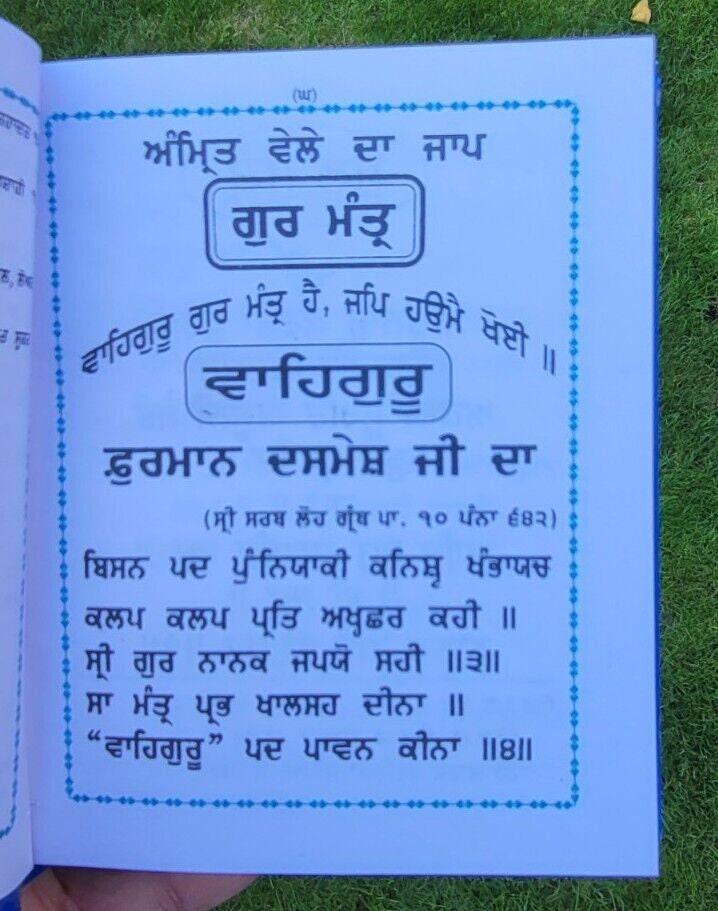 (ਘ)
ਅੰਮ੍ਰਿਤ ਵੇਲੇ ਦਾ ਜਾਪ
ਗੁਰ ਮੰਤ੍ਰ
ਵਾਹਿਗੁਰੂ ਗੁਰ ਮੰਤ੍ਰ ਹੈ, ਜਪਿ ਹਉਮੈ ਖੋਈ ॥
ਵਾਹਿਗੁਰੂ
ਫ਼ੁਰਮਾਨ ਦਸਮੇਸ਼ ਜੀ ਦਾ
(ਸ੍ਰੀ ਸਰਬ ਲੋਹ ਗ੍ਰੰਥ ਪਾ. ੧੦ ਪੰਨਾ ੬੪੨)
ਬਿਸਨ ਪਦ ਪੁੰਨਿਯਾਕੀ ਕਨਿਸ਼੍ਰ ਖੰਭਾਯਚ
ਕਲਪ ਕਲਪ ਪ੍ਰਤਿ ਅਖ੍ਹਰ ਕਹੀ ॥
ਸ੍ਰੀ ਗੁਰ ਨਾਨਕ ਜਪਯੋ ਸਹੀ ॥੩॥
ਸਾ ਮੰਤ੍ਰ ਪ੍ਰਭ ਖਾਲਸਹ ਦੀਨਾ ॥
“ਵਾਹਿਗੁਰੂ” ਪਦ ਪਾਵਨ ਕੀਨਾ ॥੪॥